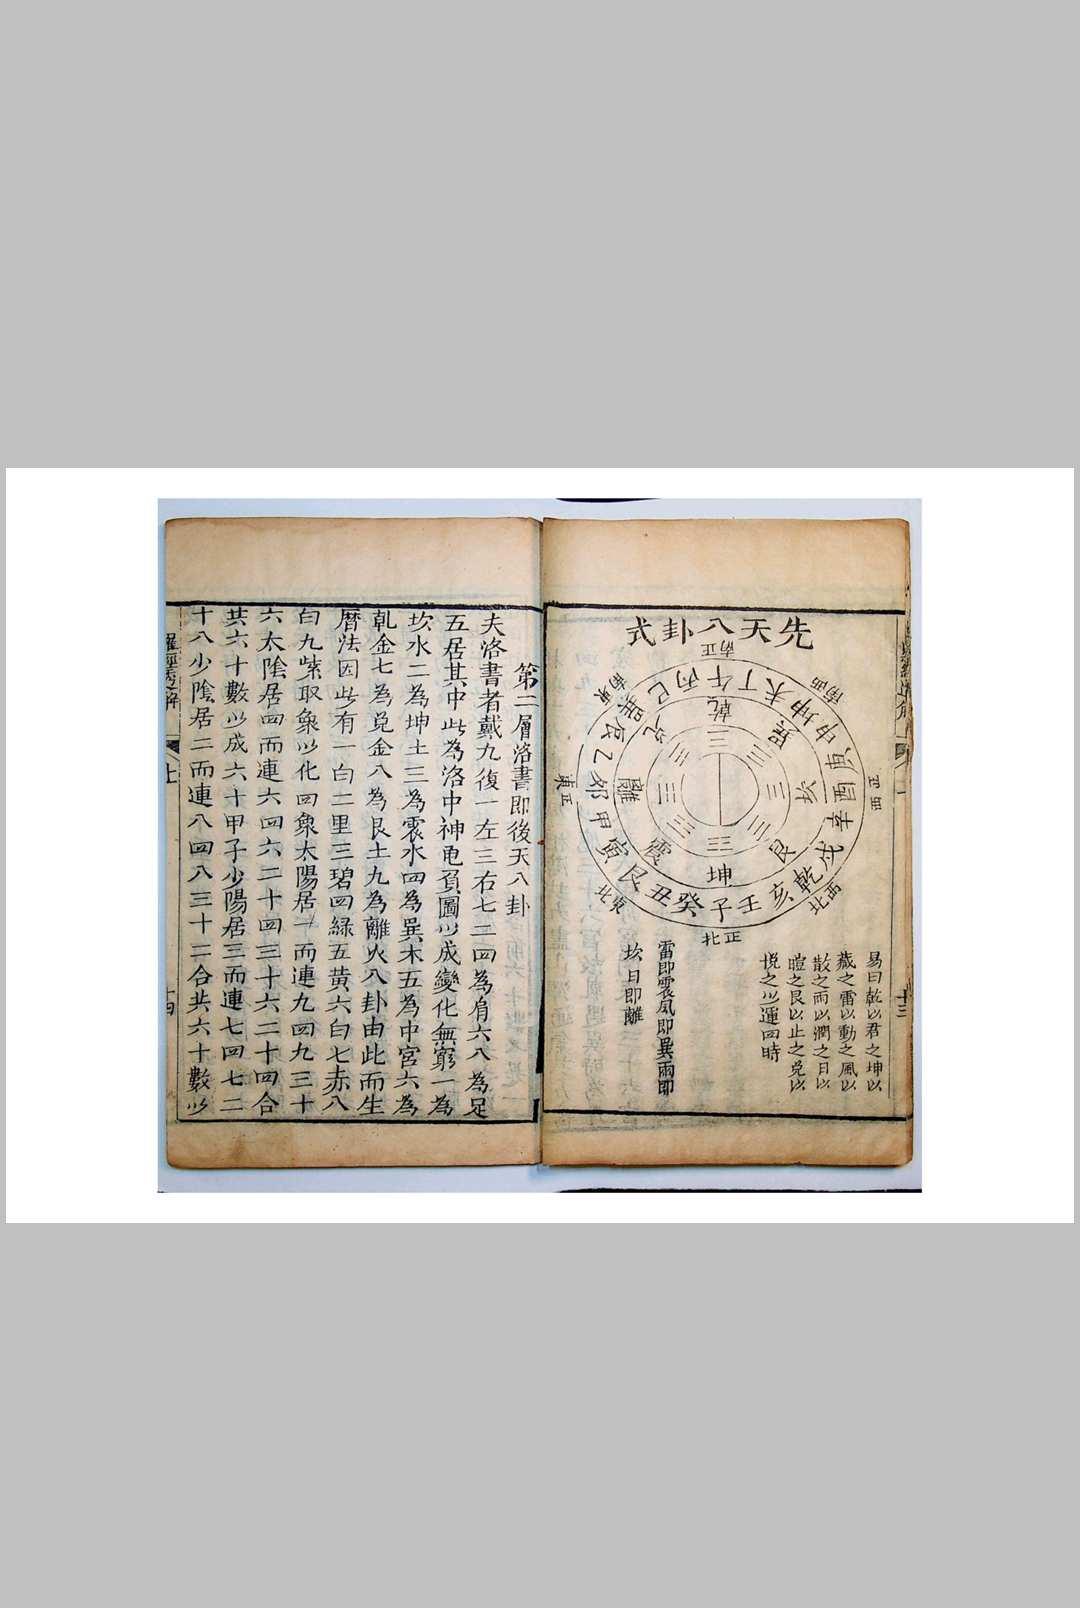 先天八卦式
正南
西南
正西
西北
正北
東北
正東
東南
午丁未坤申庚酉辛戌乾亥壬子癸丑艮寅甲卯乙辰巽巳丙
乾巽坎艮坤震離兌
易曰乾以君之坤以
藏之雷以動之風以
散之雨以潤之日以
暄之艮以止之兌以
悅之以運四時
雷即震風即巽雨即
坎日即離
十三
第二層洛書即後天八卦
夫洛書者戴九復一左三右七二四為肩六八為足
五居其中此為洛中神龟負圖以成變化無窮一為
坎水二為坤土三為震水四為巽木五為中宮六為
乹金七為兌金八為艮土九為離火八卦由此而生
曆法因此有一白二里三碧四緑五黄六白七赤八
白九紫取象以化四象太陽居一而連九四九三十
六太陰居四而連六四六二十四三十六二十四合
共六十數以成六十甲子少陽居三而連七四七二
十八少陰居二而連八四八三十二合共六十數以
羅經透解
上
十四